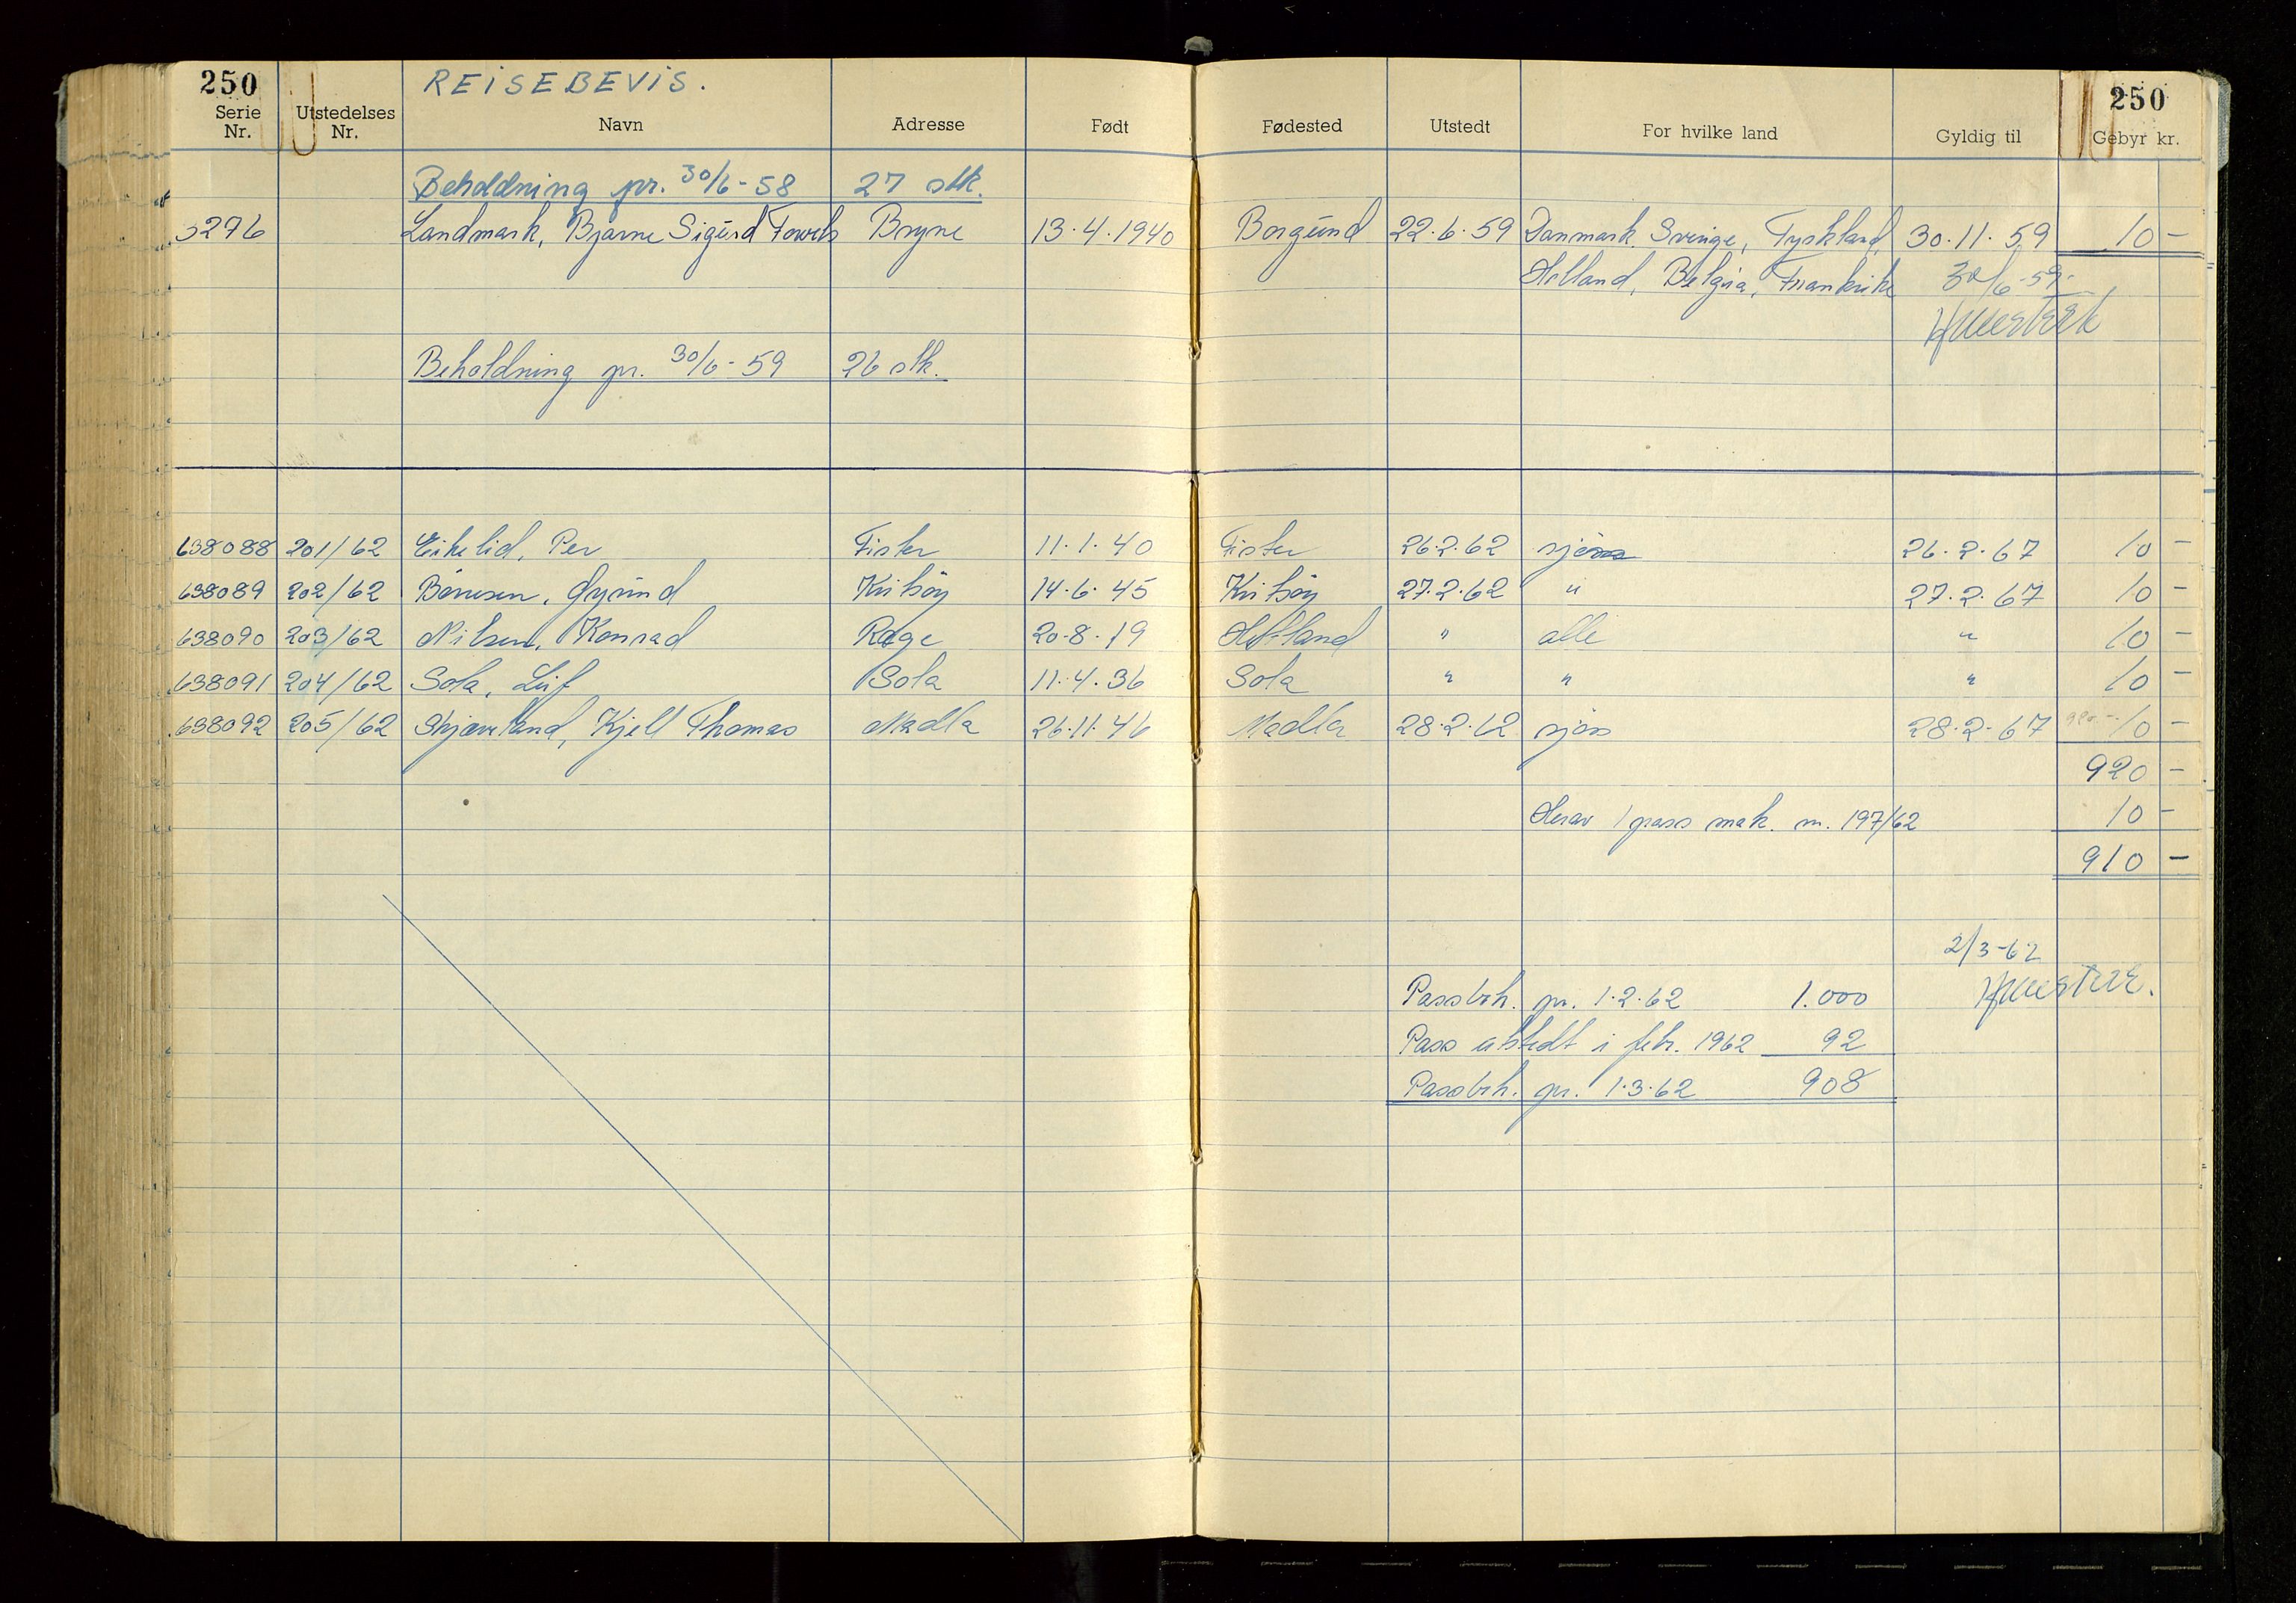 250 REISEBEVIS. 250
Serie Nr. Utstedelses Nr. Navn Adresse Født Fødested Utstedt For hvilke land Gyldig til Gebyr kr.
Beholdning pr. 30/6-58 27 stk.
5276 Landmark, Bjarne Sigurd Bryne 13.4.1940 Borgund 22.6.59 Danmark, Sverige, Tyskland, 30.11.59 10 -
Holland, Belgia, Frankrike 30/6-59
Beholdning pr. 30/6-59 26 stk.
638088 201/62 Eikelid, Per Fister 11.1.40 Fister 26.2.62 sjøs 26.2.67 10 -
638089 202/62 Børresen, Øyvind Kvitsøy 14.6.45 Kvitsøy 27.2.62 " 27.2.67 10 -
638090 203/62 Nilsen, Konrad Rege 20.8.19 Hetland " alle " 10 -
638091 204/62 Sola, Leif Sola 11.4.36 Sola " " " 10 -
638092 205/62 Skjæveland, Kjell Thomas Madla 26.11.46 Madla 28.2.62 sjøs 28.2.67 920.- 10 -
920 -
Herav 1 pass mak. nr. 197/62 10 -
910 -
2/3-62
Passbeh. pr. 1.2.62 1.000
Pass utstedt i febr. 1962 92
Passbeh. pr. 1.3.62 908